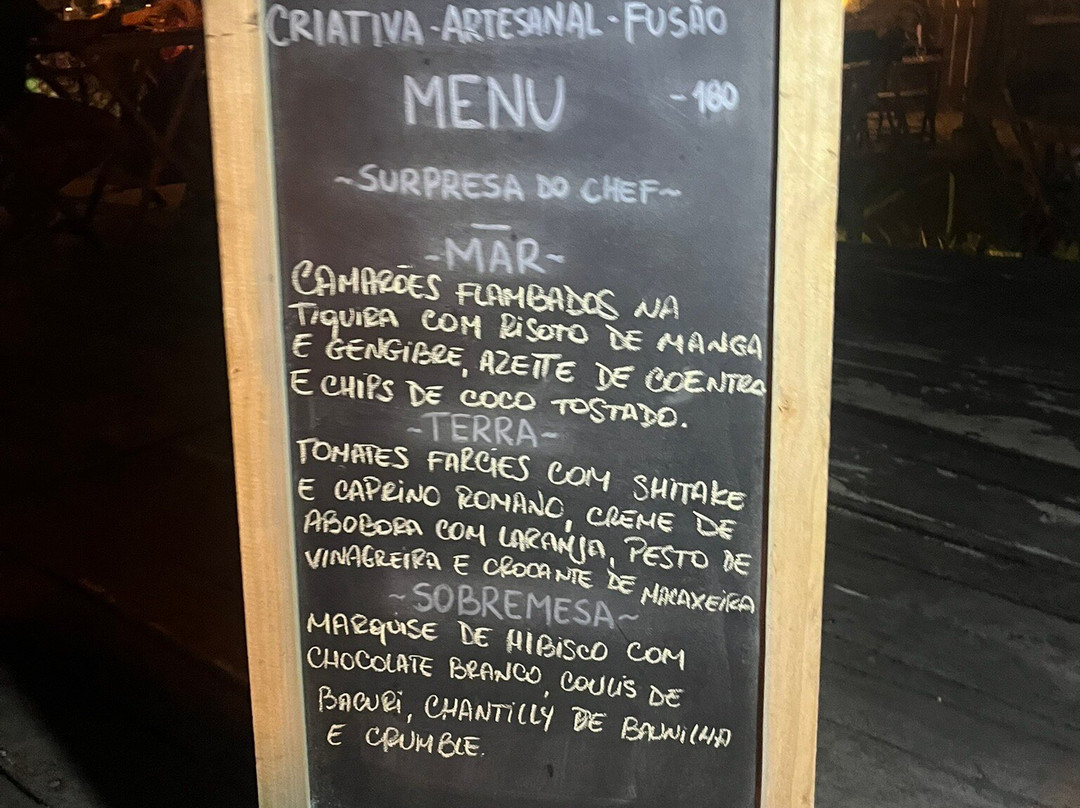 CRIATIVA - ARTESANAL - FUSÃO
MENU - 180
~SURPRESA DO CHEF~
-MAR-
CAMARÕES FLAMBADOS NA
TIQUIRA COM RISOTO DE MANGA
E GENGIBRE, AZEITE DE COENTRO
E CHIPS DE COCO TOSTADO.
-TERRA-
TOMATES FARCIES COM SHITAKE
E CAPRINO ROMANO, CREME DE
ABOBORA COM LARANJA, PESTO DE
VINAGREIRA E CROCANTE DE MACAXEIRA
~SOBREMESA~
MARQUISE DE HIBISCO COM
CHOCOLATE BRANCO, COULIS DE
BACURI, CHANTILLY DE BAUNILHA
E CRUMBLE.